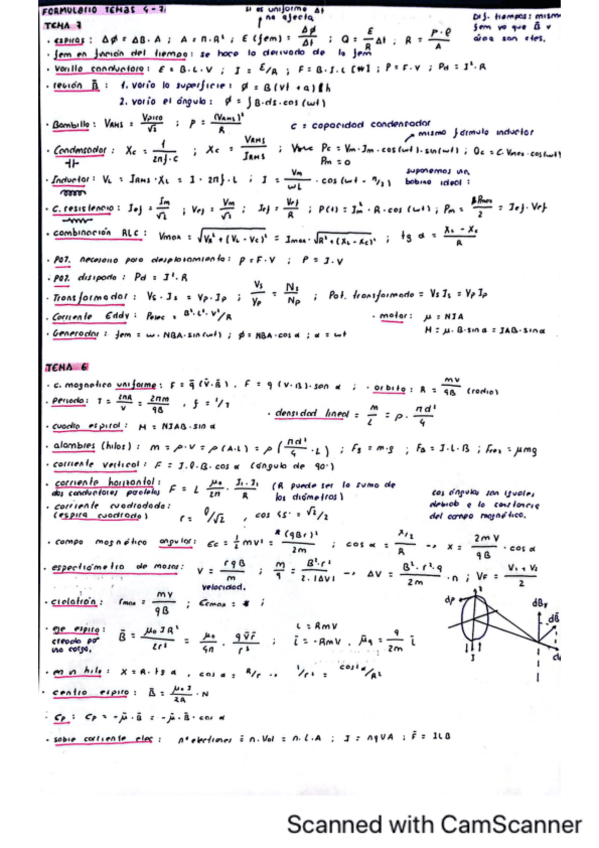 FORMULARIO TEMAS 4-7:
si es uniforme Δt no afecta
TEMA 7
Dif. tiempos: misma fem ya que B y área son ctes.
· espiras: Δφ = ΔB·A ; A = π·R² ; E (fem) = Δφ/Δt ; Q = E/R Δt ; R = ρ·l/A
· fem en función del tiempo: se hace la derivada de la fem
· Varilla conductora: E = B·L·V ; I = E/R ; F = B·I·L [N] ; P = F·V ; Pd = I²·R
· región B: 1. varía la superficie: φ = B(Vt + a)h
2. varía el ángulo: φ = ∫B·ds·cos(ωt)
· Bombilla: VRMS = Vpico/√2 ; P = (VRMS)²/R
C = capacidad condensador
mismo fórmula inductor
· Condensador: Xc = 1/2πf·C ; Xc = VRMS/IRMS ; Pc = Vm·Im·cos(ωt)·sin(ωt) ; Qc = C·Vmax·cos(ωt)
Pm = 0
· Inductor: VL = IRMS·XL = I·2πf·L ; I = Vm/ωL · cos(ωt - π/2)
suponemos una bobina ideal:
· C. resistencia: Ief = Im/√2 ; Vef = Vm/√2 ; Ief = Vef/R ; P(t) = Im²·R·cos(ωt) ; Pm = Pmax/2 = Ief·Vef
· combinación RLC: Vmax = √VR²+(VL-VC)² = Imax·√R²+(XL-XC)² ; tg α = XL - XC/R
· Pot. necesaria para desplazamiento: P = F·V ; P = I·V
· Pot. disipada: Pd = I²·R
· Transformador: Vs·Is = Vp·Ip ; Vs/Vp = Ns/Np ; Pot. transformada = Vs Is = Vp Ip
· Corriente Eddy: = B²·L²·V²/R
· motor: μ = NIA
M = μ·B·sin α = IAB·sin α
· Generador: fem = ω·NBA·sin(ωt) ; φ = NBA·cos α ; α = ωt
TEMA 6
· c. magnético uniforme: F = q(V·B), F = q(V·B)·sen α ; · orbita: R = mV/qB (radio)
· Periodo: T = 2πR/V = 2πm/qB , f = 1/T
· densidad lineal = m/L = ρ·πd²/4
· cuadro espiral: M = NIAB·sin α
· alambres (hilos): m = ρ·V = ρ(A·L) = ρ(πd²/4·L) ; Fg = m·g ; FB = I·L·B ; = μmg
· corriente vertical: F = I·l·B·cos α (ángulo de 90°)
· corriente horizontal: dos conductores paralelos F = L μ₀/2π · I₁·I₂/R (R puede ser la suma de los diámetros)
· corriente cuadrada: (espira cuadrada) r = /√2 , cos 45° = √2/2
los ángulos son iguales debido a la constancia del campo magnético.
· campo magnético angular: Ec = 1/2 mV² = (qBr)²/2m ; cos α = x/2/R → x = 2mV/qB · cos α
· espectrómetro de masas: V = rqB/m ; m/q = B²·r²/2·|ΔV| → ΔV = B²·r²·q/2m · n ; VF = V₁+V₂/2
velocidad.
· ciclotrón: rmax = mV/qB ; Ecmax = ;
· eje espira: creado por una carga. B = μ₀IR²/2r³ = μ₀/4π · qVr/r³ ; L = RmV ; L = -RmV, μq = q/2m L
· en un hilo: X = R·tg α , cos α = R/r → 1/r² = cos²α/R²
· centro espira: B = μ₀I/2R · N
· Ep: Ep = -μ·B = -μ·B·cos α
· sobre corriente elec: nº electrones = n·Vol = n·L·A ; I = nqVA ; F = ILB
dP
dBy
dB
I
Scanned with CamScanner